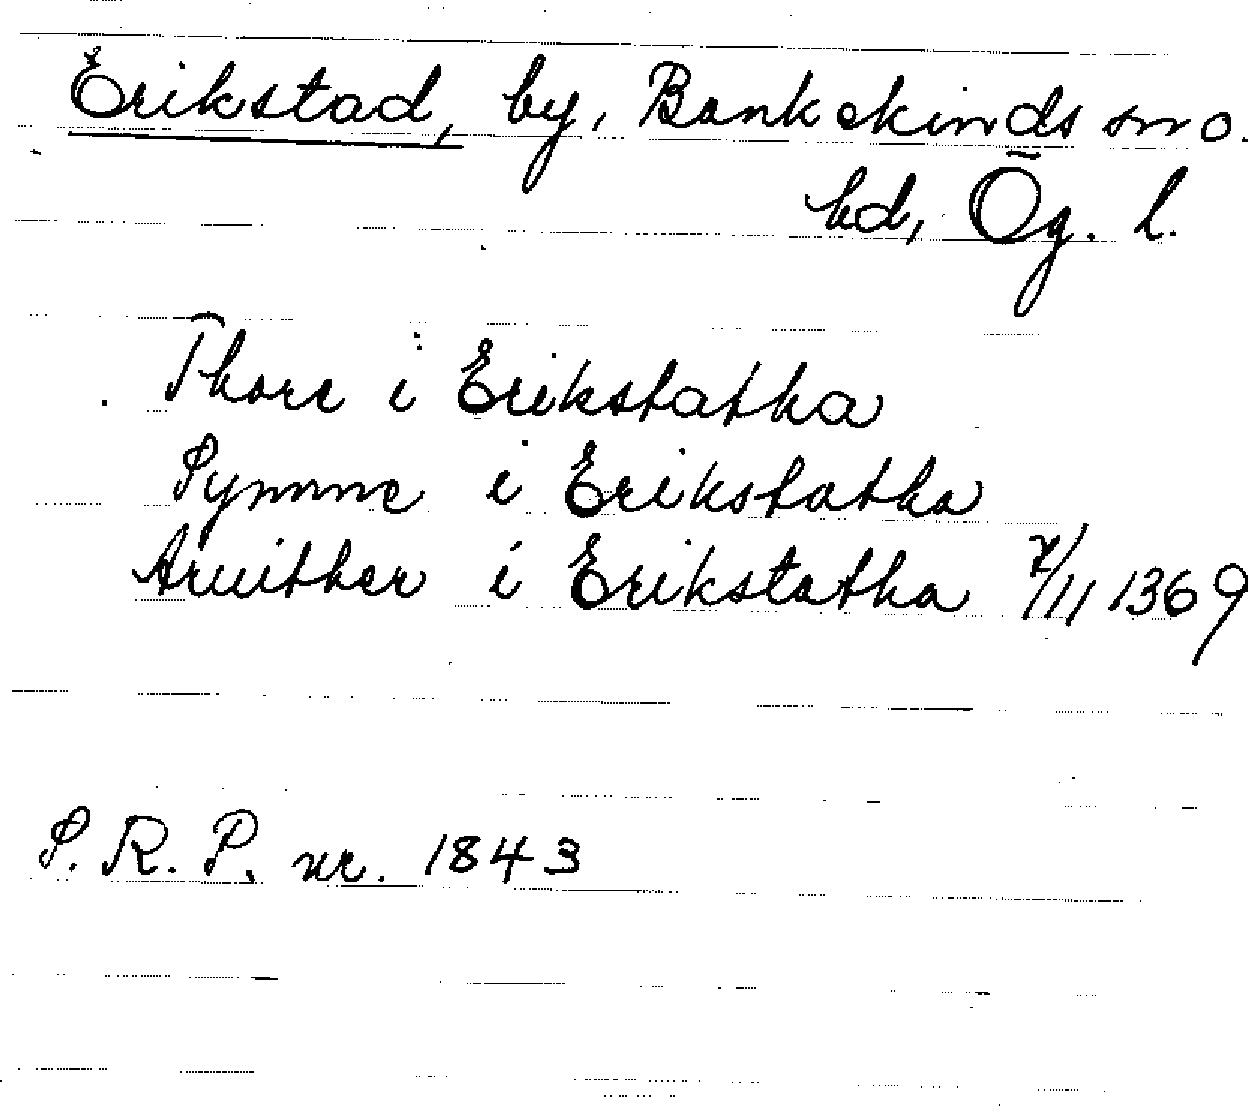 Erikstad, by, Bankekinds sn o.
hd, Ög. l.
Thore i Erikstatha
Symme i Erikstatha
Aruither i Erikstatha 7/11 1369
S. R. P. nr. 1843